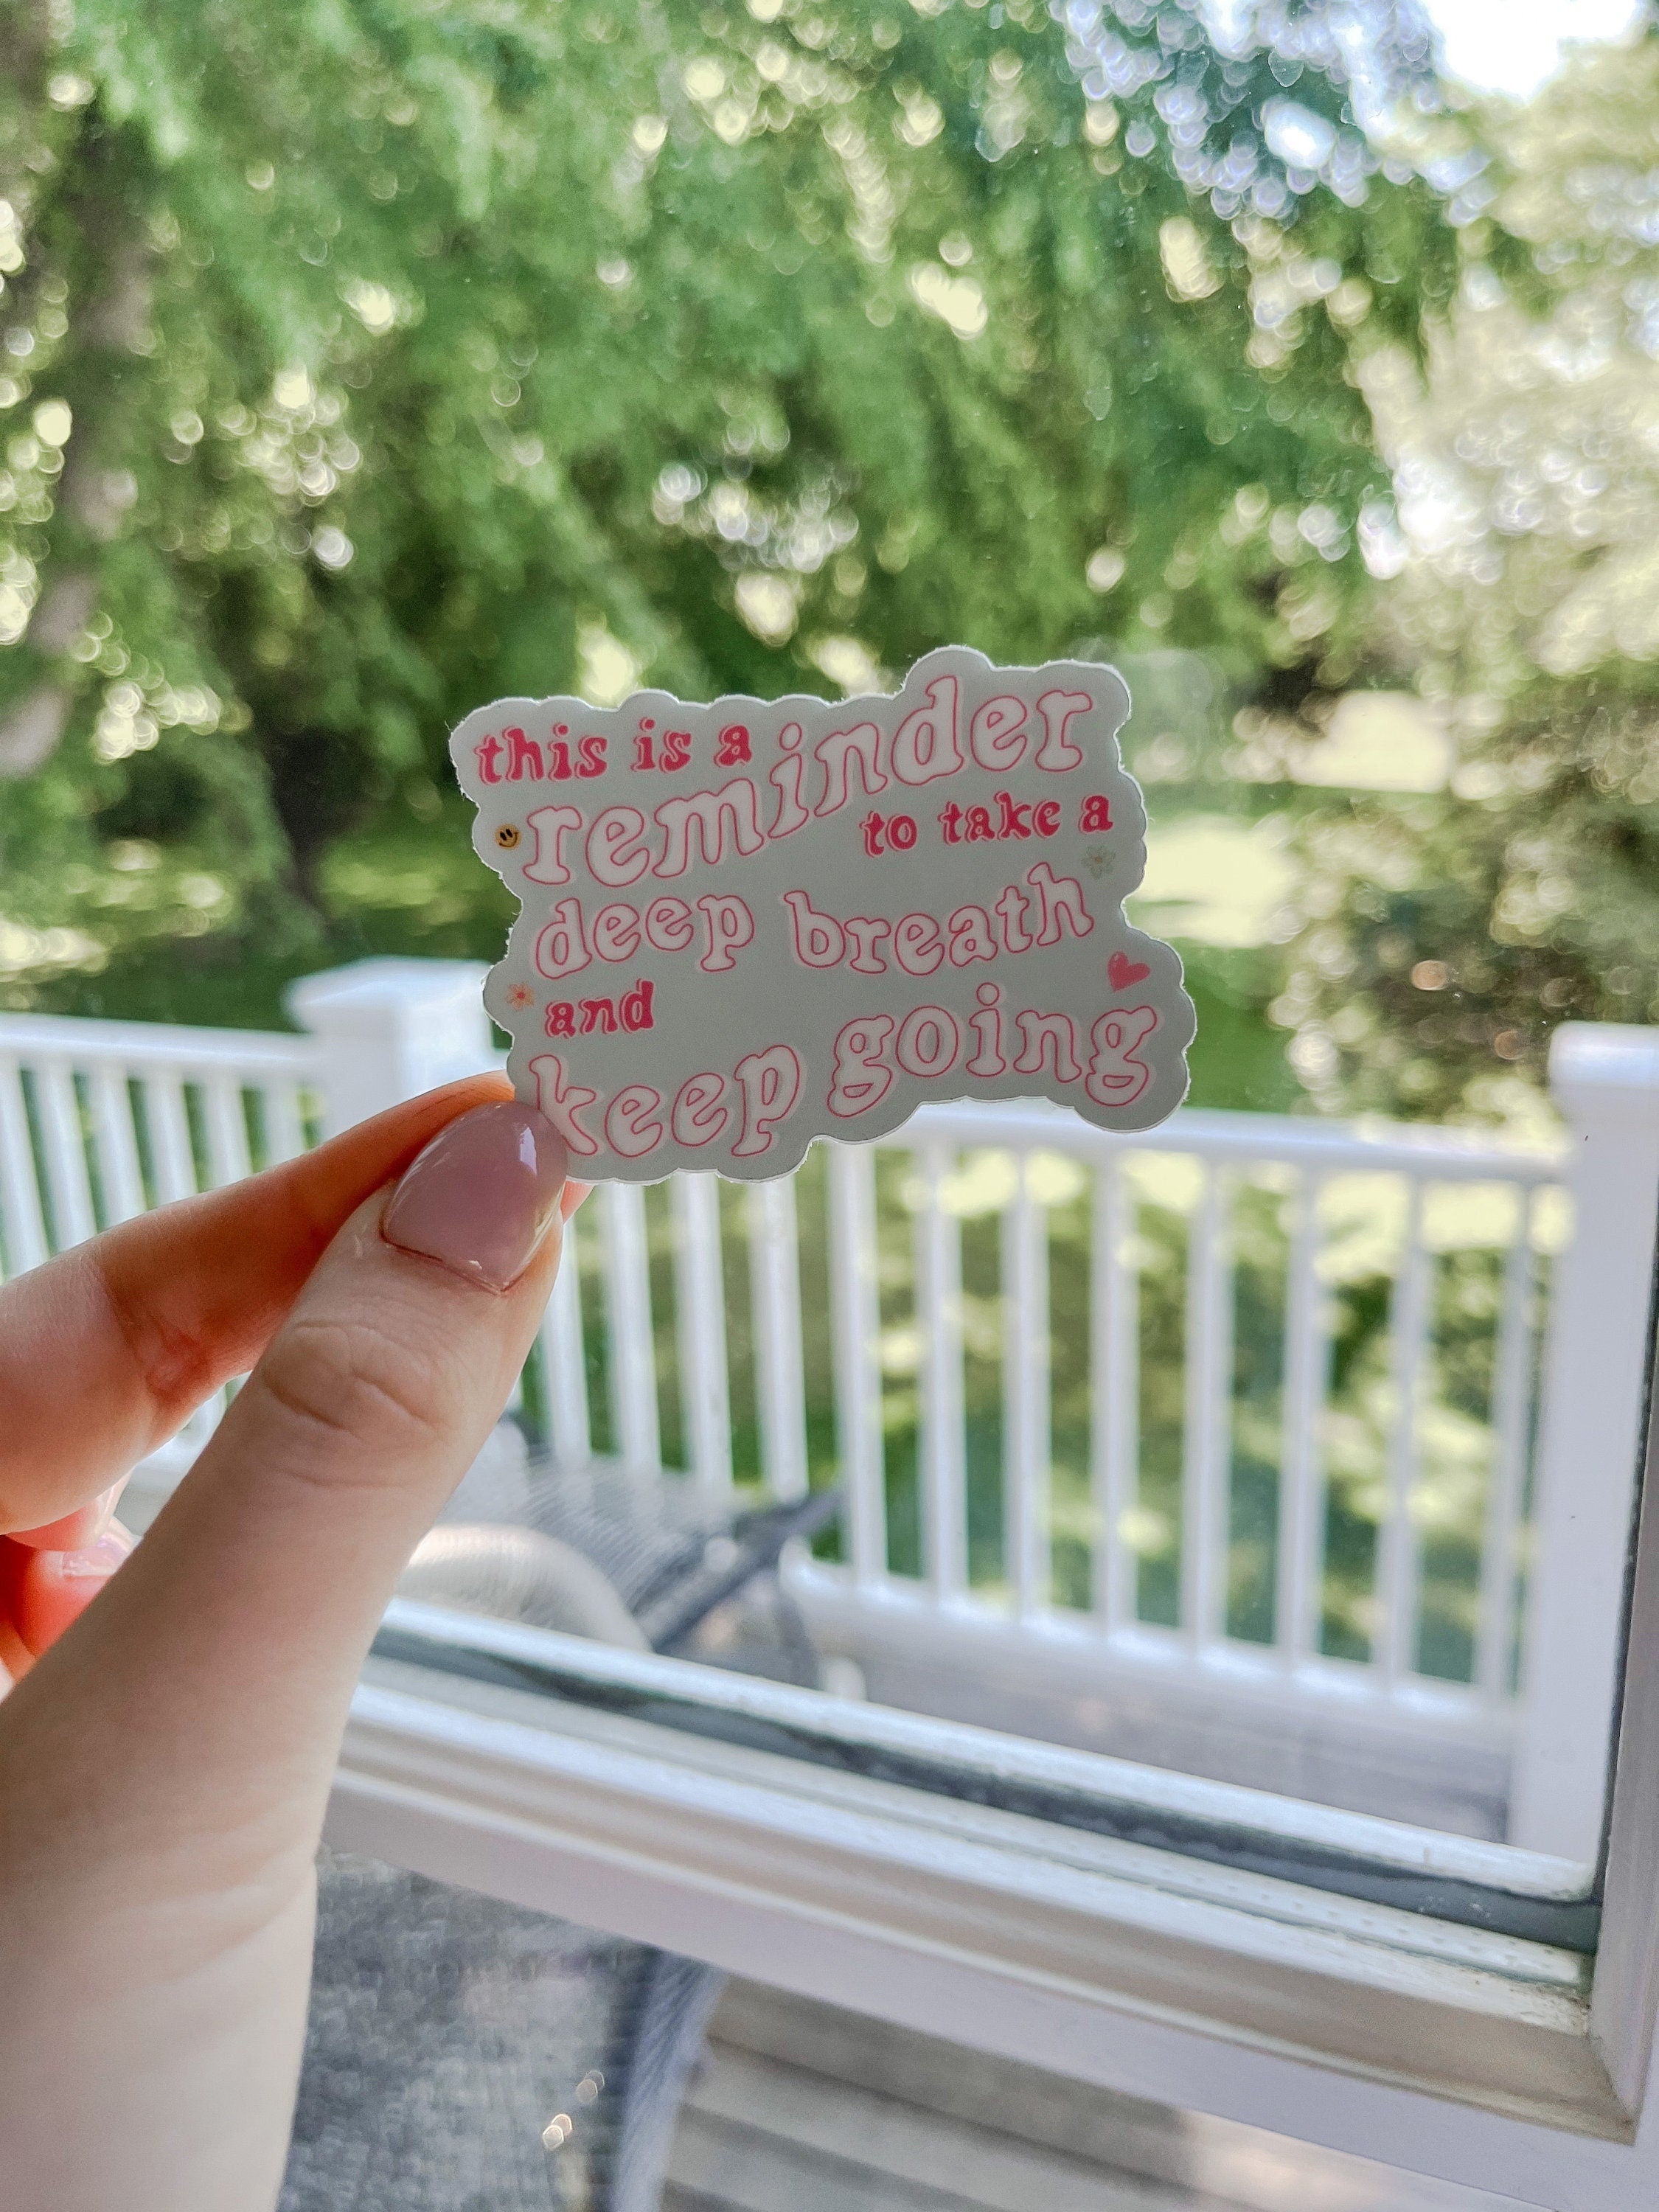 this is a
reminder
to take a
deep breath
and
keep going